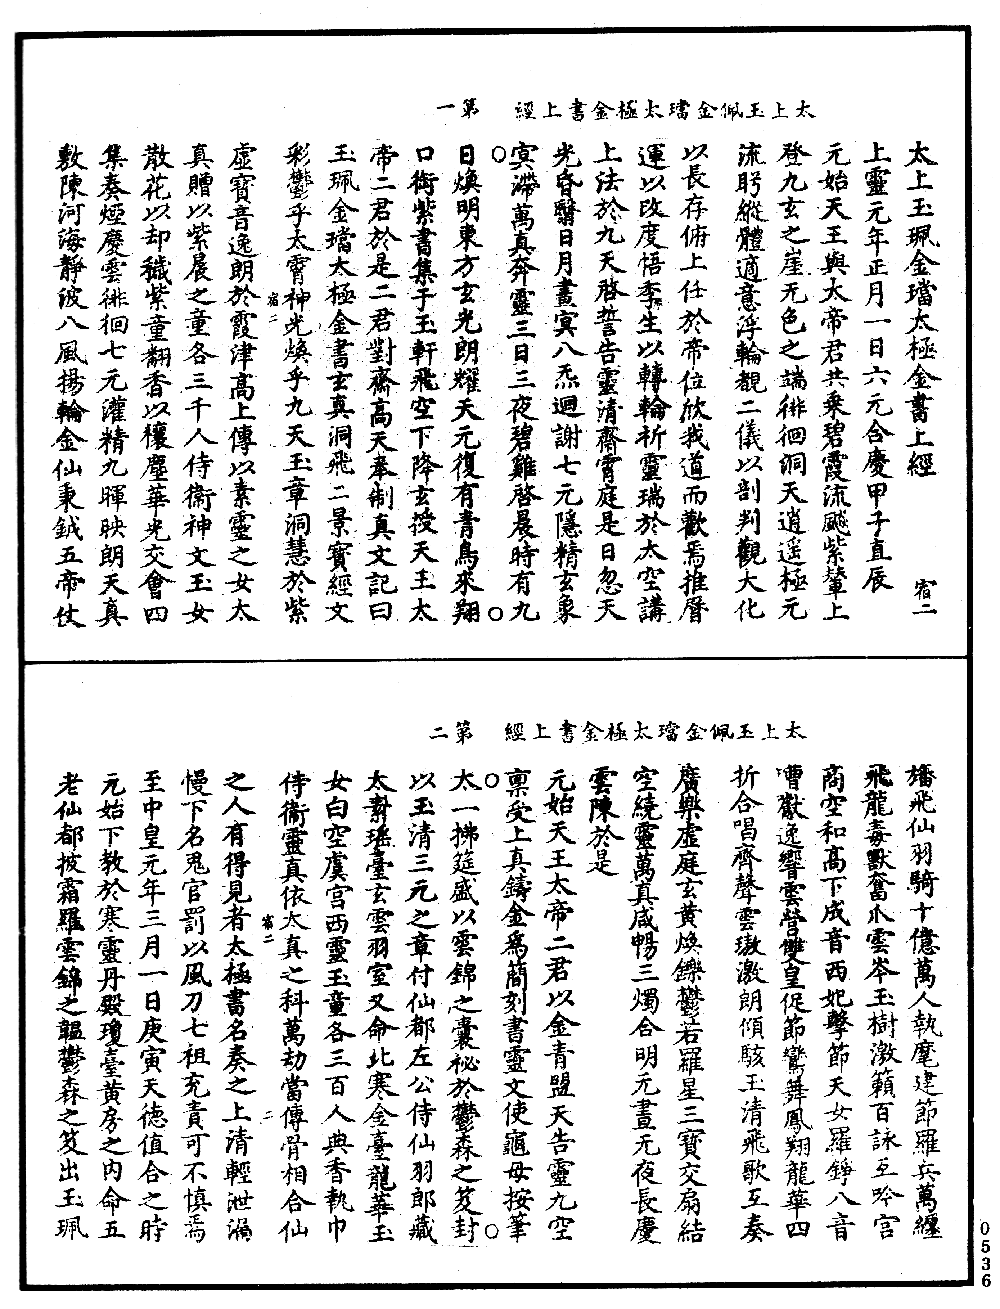 太上玉佩金璫太極金書上經 第一
太上玉珮金璫太極金書上經 宿二
上靈元年正月一日六元合慶甲子直辰
元始天王與太帝君共乘碧霞流飈紫輦上
登九玄之崖无色之端徘徊洞天逍遥極元
流眄縱體適意浮輪覩二儀以剖判觀大化
以長存俯上任於帝位欣我道而歡焉推曆
運以改度悟季生以轉輪祈靈瑞於太空講
上法於九天啓誓告靈清齋霄庭是日忽天
光昏翳日月晝冥八炁迴謝七元隱精玄象
冥滯萬真奔靈三日三夜碧雞啓晨時有九
日煥明東方玄光朗耀天元復有青鳥來翔
口銜紫書集于玉軒飛空下降玄授天王太
帝二君於是二君對齋高天奉制真文記曰
玉珮金璫太極金書玄真洞飛二景寶經文
彩鬱乎太霄神光煥乎九天玉章洞慧於紫
宿二
虛寶音逸朗於霞津高上傳以素靈之女太
真贈以紫晨之童各三千人侍衛神文玉女
散花以却穢紫童翻香以禳塵華光交會四
集奏煙慶雲徘徊七元灌精九暉映朗天真
敷陳河海靜波八風揚輪金仙秉鉞五帝仗
太上玉佩金璫太極金書上經 第二
旛飛仙羽騎十億萬人執麾建節羅兵萬纏
飛龍毒獸奮爪雲岑玉樹激籟百詠互吟宫
商空和高下成音西妃擊節天女羅錚八音
嘈獻逸響雲營雙皇促節鸞舞鳳翔龍華四
折合唱齊聲雲璈激朗傾駭玉清飛歌互奏
廣樂虛庭玄黄煥鑠鬱若羅星三寶交扇結
空繞靈萬真咸暢三燭合明元晝无夜長慶
雲陳於是
元始天王太帝二君以金青盟天告靈九空
禀受上真鑄金爲簡刻書靈文使龜母按筆
太一拂筵盛以雲錦之囊祕於鬱森之笈封
以玉清三元之章付仙都左公侍仙羽郎藏
太素瑶臺玄雲羽室又命北寒金臺龍華玉
女白空虞宫西靈玉童各三百人典香執巾
侍衛靈真依太真之科萬劫當傳骨相合仙
宿二 二
之人有得見者太極書名奏之上清輕泄漏
慢下名鬼官罰以風刀七祖充責可不慎焉
至中皇元年三月一日庚寅天德值合之時
元始下教於寒靈丹殿瓊臺黄房之内命五
老仙都披霜羅雲錦之韞鬱森之笈出玉珮
0536